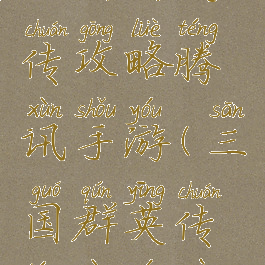 chuán gōng lüè téng
传攻略腾
xùn shǒu yóu sān
讯手游(三
guó qún yīng chuán
国群英传